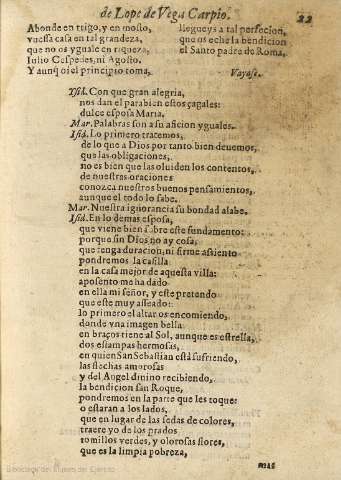 de Lope de Vega Carpio. 22
Abonde en trigo, y en mosto,
vuessa casa en tal grandeza,
que no os yguale en riqueza,
Iulio Cespedes, ni Agosto.
Y aunq̃ oi el principio toma,
llegueys a tal perfecion,
que os eche la bendicion
el Santo padre de Roma.
Vayase.
Isid. Con que gran alegria,
nos dan el parabien estos çagales:
dulce esposa Maria.
Mar. Palabras son a su aficion yguales.
Isid. Lo primero tratemos,
de lo que a Dios por tanto bien deuemos,
que las obligaciones,
no es bien que las oluiden los contentos,
de nuestras oraciones
conozca nuestros buenos pensamientos,
aunque el todo lo sabe.
Mar. Nuestra ignorancia su bondad alabe.
Isid. En lo demas esposa,
que viene bien sobre este fundamento:
porque sin Dios no ay cosa,
que tenga duracion, ni firme assiento
pondremos la casilla
en la casa mejor de aquesta villa:
aposento me ha dado
en ella mi señor, y este pretendo
que este muy asseado:
lo primero el altar os encomiendo,
donde vna imagen bella
en braços tiene al Sol, aunque es estrella,
dos estampas hermosas,
en quien San Sebastian está sufriendo,
las flechas amorosas
y del Angel diuino recibiendo,
la bendicion san Roque,
pondremos en la parte que les toque:
o estaran a los lados,
que en lugar de las sedas de colores,
traere yo de los prados
tomillos verdes, y olorosas flores,
que es la limpia pobreza,
mas
Biblioteca del Museo del Ejército